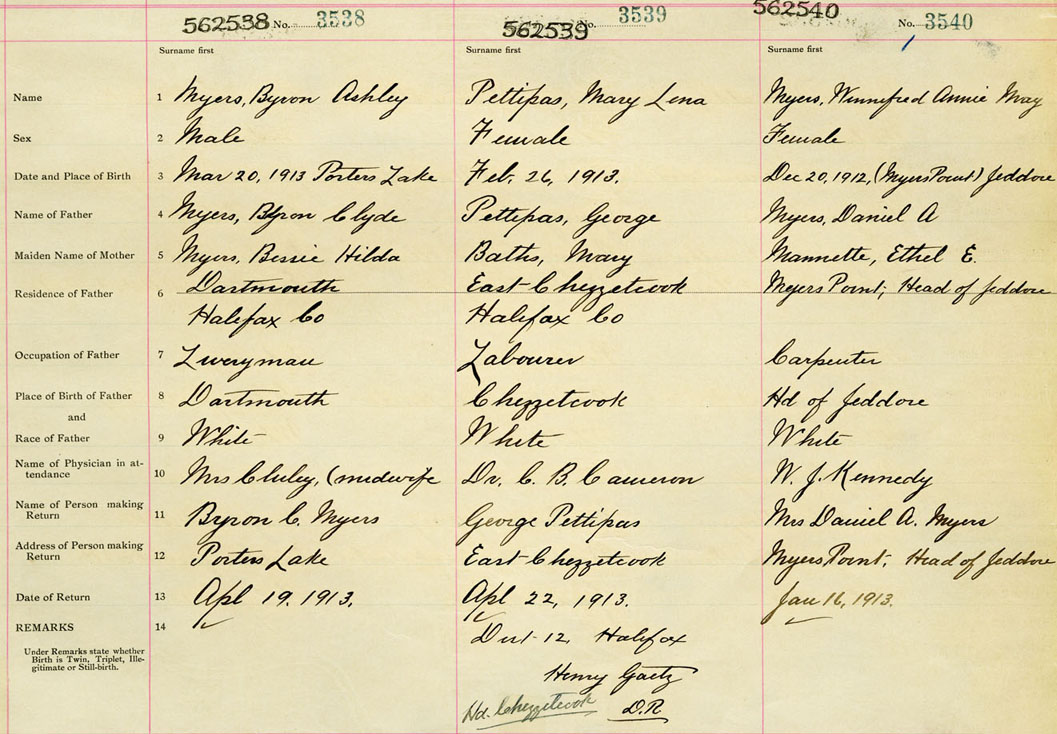 562538 No. 3538 562539 No. 3539 562540 No. 3540
Surname first Surname first Surname first
Name 1 Myers, Byron Ashley Pettipas, Mary Lena Myers, Winnefred Annie May
Sex 2 Male Female Female
Date and Place of Birth 3 Mar 20, 1913 Porters Lake Feb. 26, 1913. Dec 20, 1912, (Myers Point) Jeddore
Name of Father 4 Myers, Byron Clyde Pettipas, George Myers, Daniel A
Maiden Name of Mother 5 Myers, Bessie Hilda Baths, Mary Mannette, Ethel E.
Residence of Father 6 Dartmouth East Chezzetcook Myers Point, Head of Jeddore
Halifax Co Halifax Co
Occupation of Father 7 Liveryman Labourer Carpenter
Place of Birth of Father 8 Dartmouth Chezzetcook Hd of Jeddore
and
Race of Father 9 White White White
Name of Physician in at-
tendance 10 Mrs Cluley, (midwife Dr. C. B. Cameron W. J. Kennedy
Name of Person making
Return 11 Byron C. Myers George Pettipas Mrs Daniel A. Myers
Address of Person making
Return 12 Porters Lake East Chezzetcook Myers Point, Head of Jeddore
Date of Return 13 Apl 19. 1913. Apl 22, 1913. Jan 16, 1913.
REMARKS 14 Dist 12, Halifax
Under Remarks state whether
Birth is Twin, Triplet, Ille-
gitimate or Still-birth.
Henry Gaetz
Hd. Chezzetcook D.R